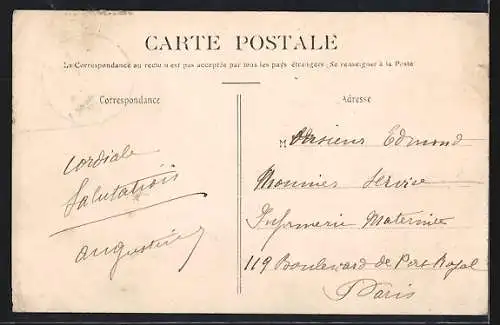 CARTE POSTALE
La Correspondance au recto n'est pas acceptée par tous les pays étrangers (Se renseigner à la Poste)
Correspondance
Adresse
cordiale
Salutations
augustine
Monsieur Edmond
Monnier Service
Infirmerie Maternité
119 Boulevard de Port Royal
Paris